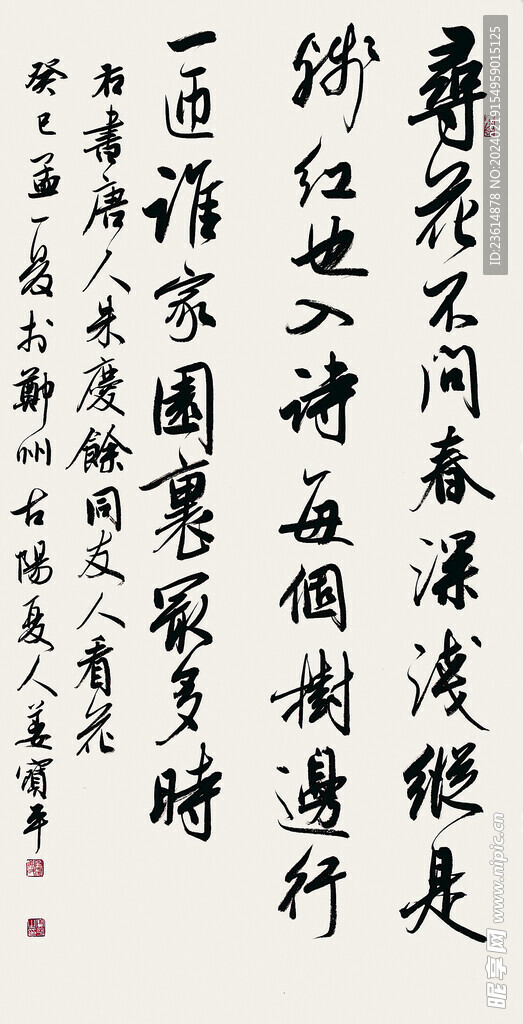 尋花不問春深淺縱是
殘紅也入詩每個樹邊行
一匝誰家園裏最多時
右書唐人朱慶餘同友人看花
癸巳孟夏於鄭州古陽夏人姜寶平
ID:23614878 NO:20240219154959015125
昵享网 www.nipic.cn